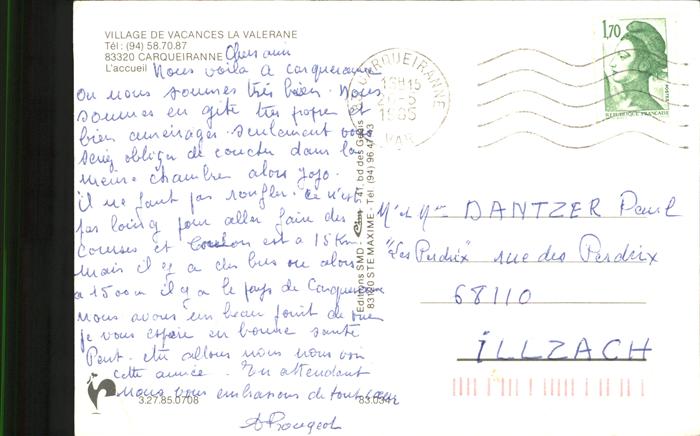 VILLAGE DE VACANCES LA VALERANE
Tél : (94) 58.70.87
83320 CARQUEIRANNE
L'accueil
Chers amis
Nous voilà à Carqueiranne
ou nous sommes très bien. Nous
sommes en gite très propre et
bien aménagés. Seulement vous
serez obliger de coucher dans la
même chambre alors Jojo.
il ne faut pas ronfler. Ce n'est
pas loing pour aller faire des
courses et Toulon est a 15 Km
mais il y a des bus ou alors
a 1500 m il y a le pays de Carqueiranne
nous avons un beau point de vue
je vous espère en bonne santé
Peut-etre allons nous nous voir
cette année. En attendant
nous vous embrassons de tout cœur
3.27.85.0708
83.034
Editions SMD
541, bd des
83120 STE MAXIME - Tél. (94) 96
CARQUEIRANNE
1986
VAR
1,70
REPUBLIQUE FRANCAISE
Mr et Mme DANTZER Paul
"Les Perdrix" rue des Perdrix
68110
ILLZACH